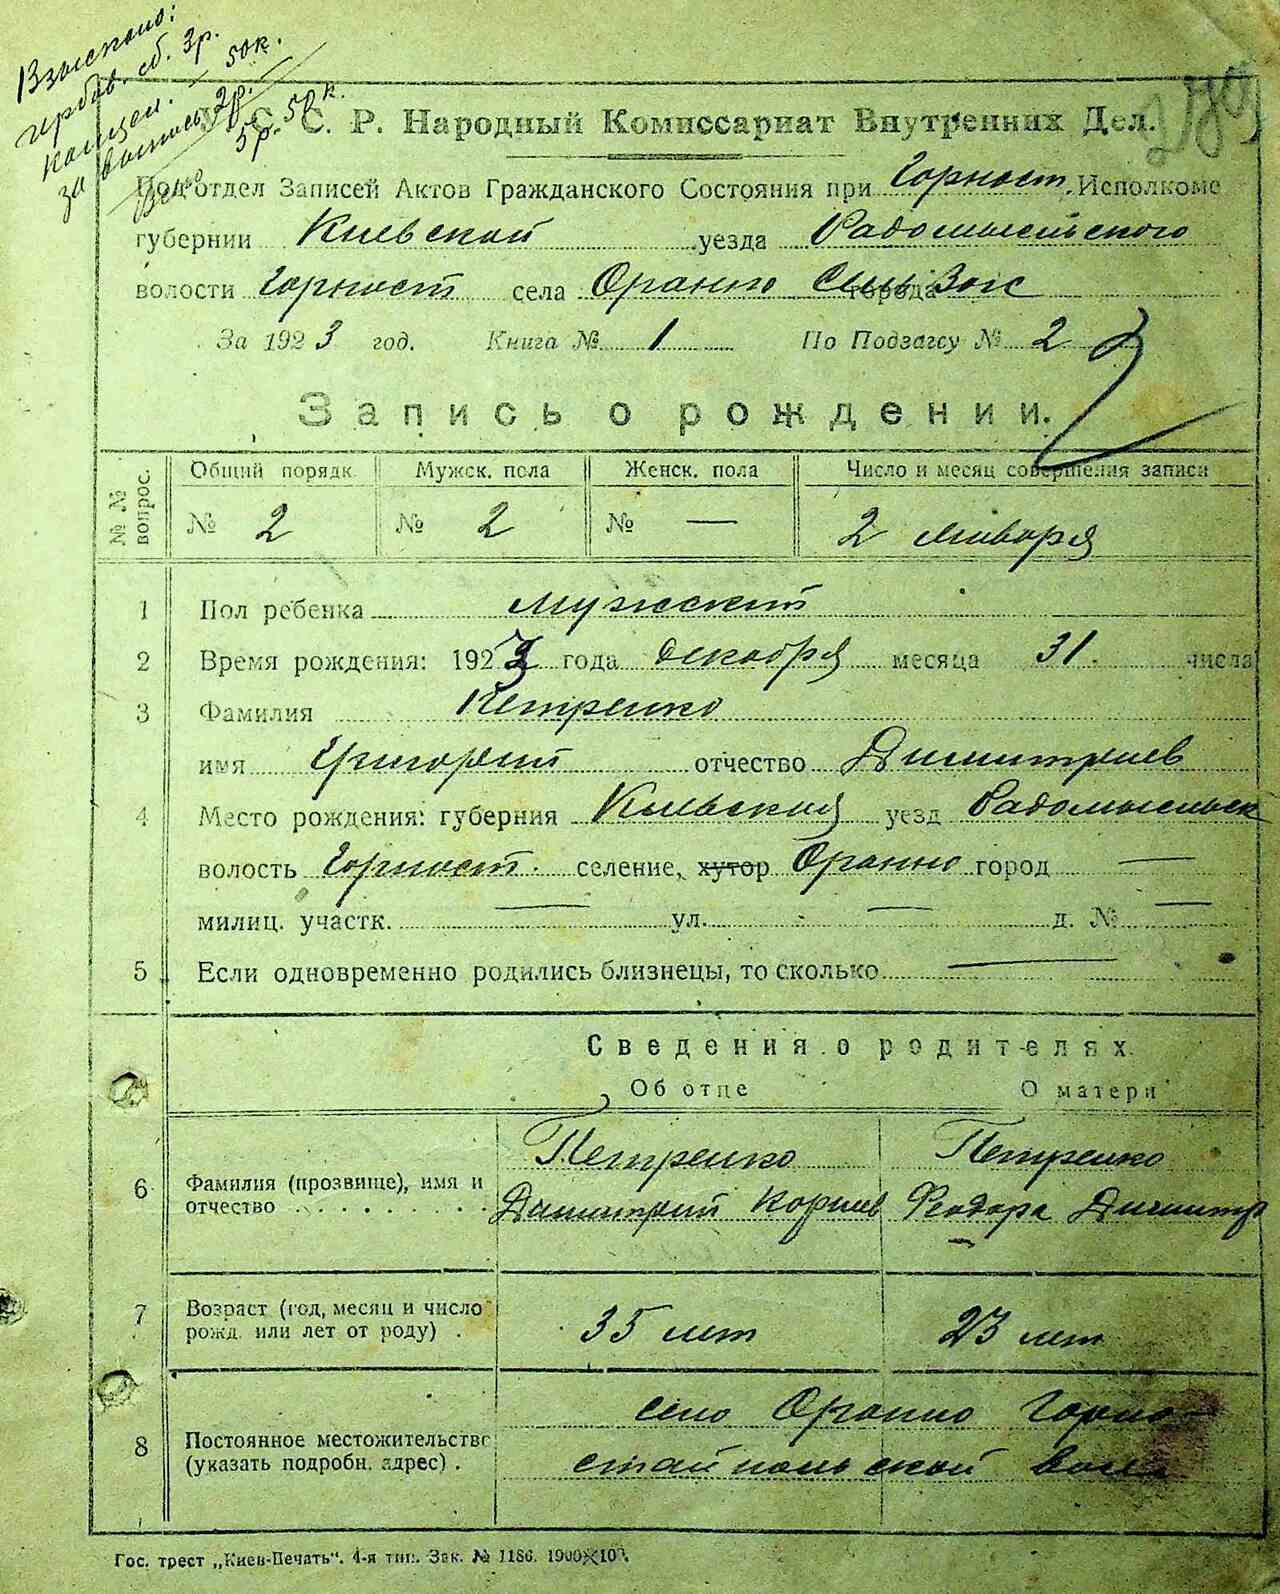 Взыскано:
гербов. сб. 3р.
канцел. — 50к.
за выпись 2р.
Всего 5р. 50к.
У. С. С. Р. Народный Комиссариат Внутренних Дел.
Подотдел Записей Актов Гражданского Состояния при Горност. Исполкоме
губернии Киевской уезда Радомысльского
волости Горност села Оранно города
За 1923 год. Книга № 1 По Подзагсу № 2
Запись о рождении.
№ № вопрос. Общий порядк Мужск. пола Женск. пола Число и месяц совершения записи
№ 2 № 2 № — 2 января
1 Пол ребенка мужский
2 Время рождения: 1923 года декабря месяца 31. числа
3 Фамилия Петренко
имя Григорий отчество Димитриев
4 Место рождения: губерния Киевская уезд Радомысльск
волость Горност. селение, хутор Оранно город —
милиц. участк. — ул. — д. № —
5 Если одновременно родились близнецы, то сколько —
Сведения о родителях.
Об отце О матери
Петренко Петренко
6 Фамилия (прозвище), имя и
отчество . . . . . . . . Димитрий Корнев Феодора Димитр
7 Возраст (год, месяц и число
рожд. или лет от роду) . 35 лет 23 лет
село Оранно Горно-
8 Постоянное местожительство
(указать подробн. адрес) . стайпольской вол.
Гос. трест „Киев-Печать“. 4-я тип. Зак. № 1186. 1900×10